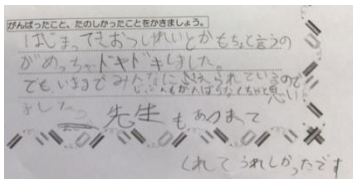 がんばったこと、たのしかったことをかきましょう。
はじまってきおっしゃいとかもちょと言うの
がめっちゃドキドキしました。
でもいままでみんなにささえられているので
じぶんもがんばらなくちゃと思い
ました。
先生もあつまて
くれてうれしかったです